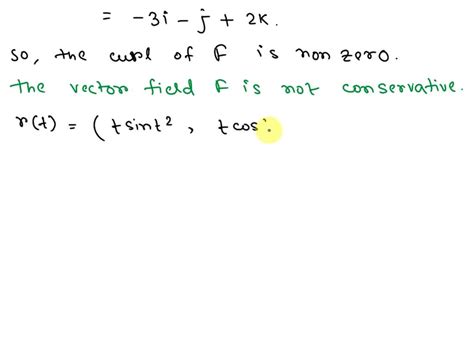 = -3i - j + 2k.
So, the curl of F is non zero.
The vector field F is not conservative.
r(t) = (t sint², t cos